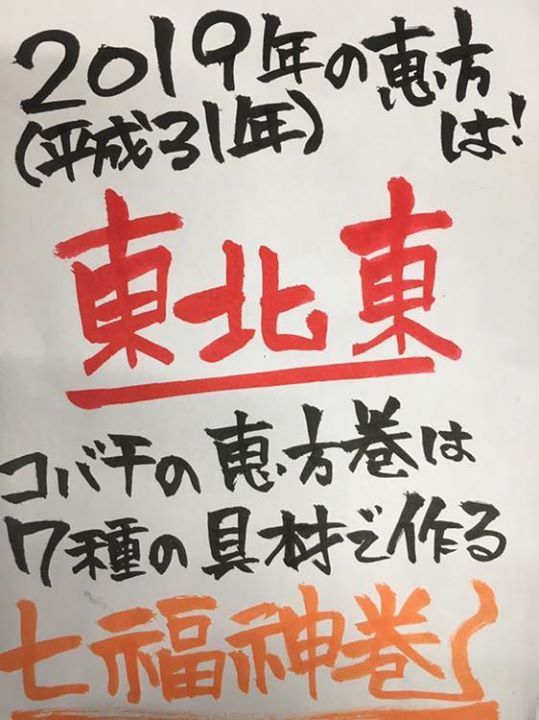 2019年の恵方
(平成31年) は!
東北東
コバチの恵方巻は
7種の具材で作る
七福神巻